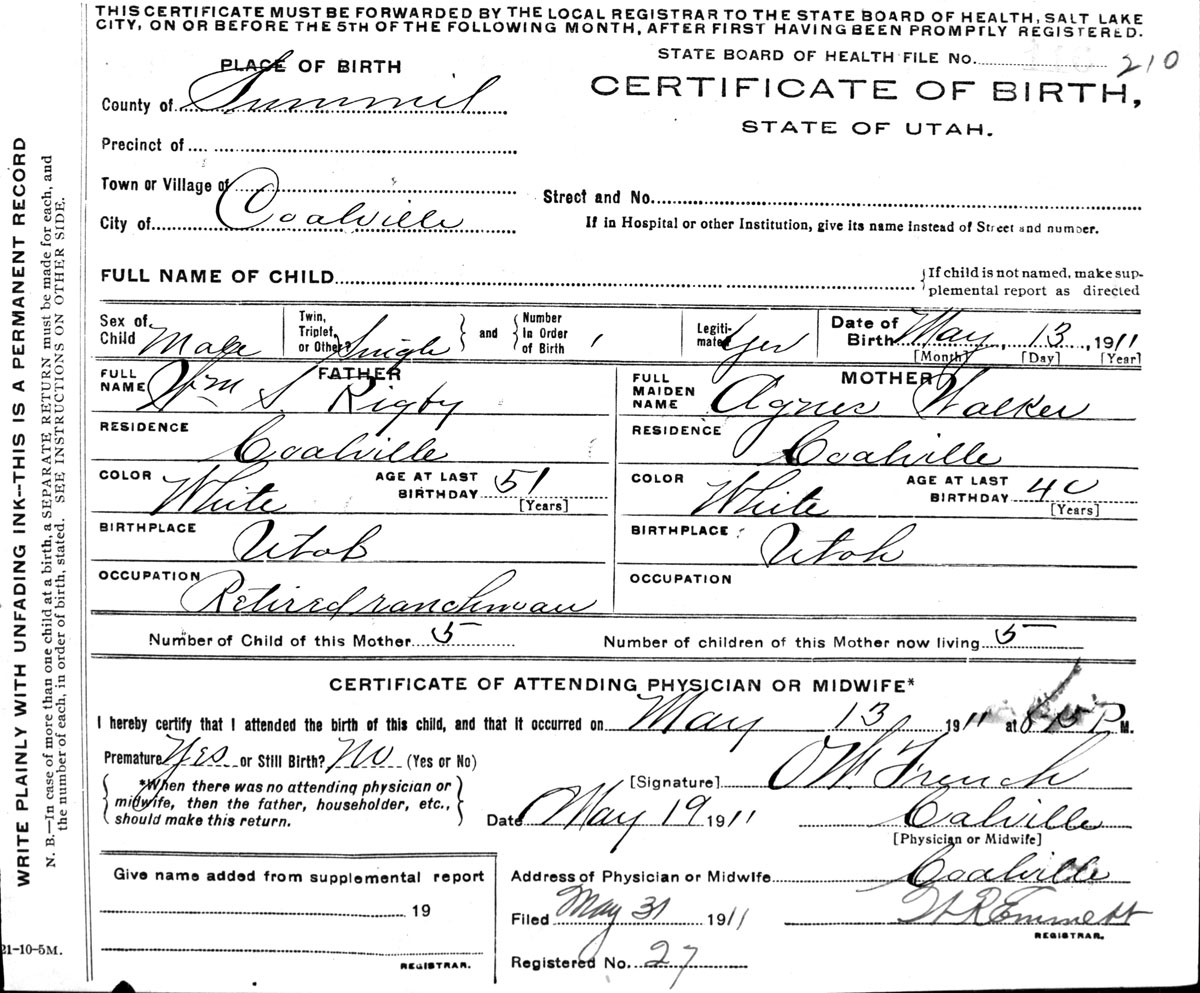 THIS CERTIFICATE MUST BE FORWARDED BY THE LOCAL REGISTRAR TO THE STATE BOARD OF HEALTH, SALT LAKE
CITY, ON OR BEFORE THE 5TH OF THE FOLLOWING MONTH, AFTER FIRST HAVING BEEN PROMPTLY REGISTERED.
STATE BOARD OF HEALTH FILE No. 210
PLACE OF BIRTH
CERTIFICATE OF BIRTH,
STATE OF UTAH.
County of Summit
Precinct of
Town or Village of
City of Coalville
Street and No.
If in Hospital or other Institution, give its name instead of Street and number.
FULL NAME OF CHILD
If child is not named, make sup-
plemental report as directed
Sex of Child Male
Twin, Triplet, or Other? Single
and
Number In Order of Birth 1
Legiti-mate? Yes
Date of Birth May 13, 1911
[Month] [Day] [Year]
FATHER
FULL NAME Wm S. Rigby
RESIDENCE Coalville
COLOR White AGE AT LAST BIRTHDAY 51
[Years]
BIRTHPLACE Utah
OCCUPATION Retired ranchman
MOTHER
FULL MAIDEN NAME Agnes Walker
RESIDENCE Coalville
COLOR White AGE AT LAST BIRTHDAY 40
[Years]
BIRTHPLACE Utah
OCCUPATION
Number of Child of this Mother 5 Number of children of this Mother now living 5
CERTIFICATE OF ATTENDING PHYSICIAN OR MIDWIFE*
I hereby certify that I attended the birth of this child, and that it occurred on May 13, 1911 at P M.
Premature Yes or Still Birth? No (Yes or No)
*When there was no attending physician or
midwife, then the father, householder, etc.,
should make this return.
[Signature] O W. French
Date May 19 1911 Calville
[Physician or Midwife]
Give name added from supplemental report
19
REGISTRAR.
Address of Physician or Midwife Coalville
Filed May 31 1911 Emmett
REGISTRAR.
Registered No. 27
21-10-5M.
WRITE PLAINLY WITH UNFADING INK—THIS IS A PERMANENT RECORD
N. B.—In case of more than one child at a birth, a SEPARATE RETURN must be made for each, and
the number of each, in order of birth, stated. SEE INSTRUCTIONS ON OTHER SIDE.